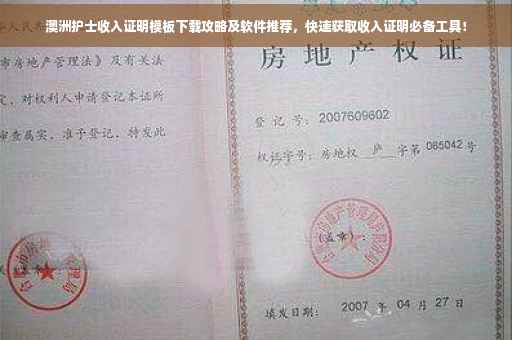 澳洲护士收入证明模板下载攻略及软件推荐，快速获取收入证明必备工具！
华人民共
市房地产管理法》及有关法
定，对权利人申请登记本证所
审查属实，准予登记，特发此
房地产权证
登记号：2007609602
权证字号：房地权 庐 字第 085042 号
（盖章）：
填发日期： 2007 年 04 月 27 日